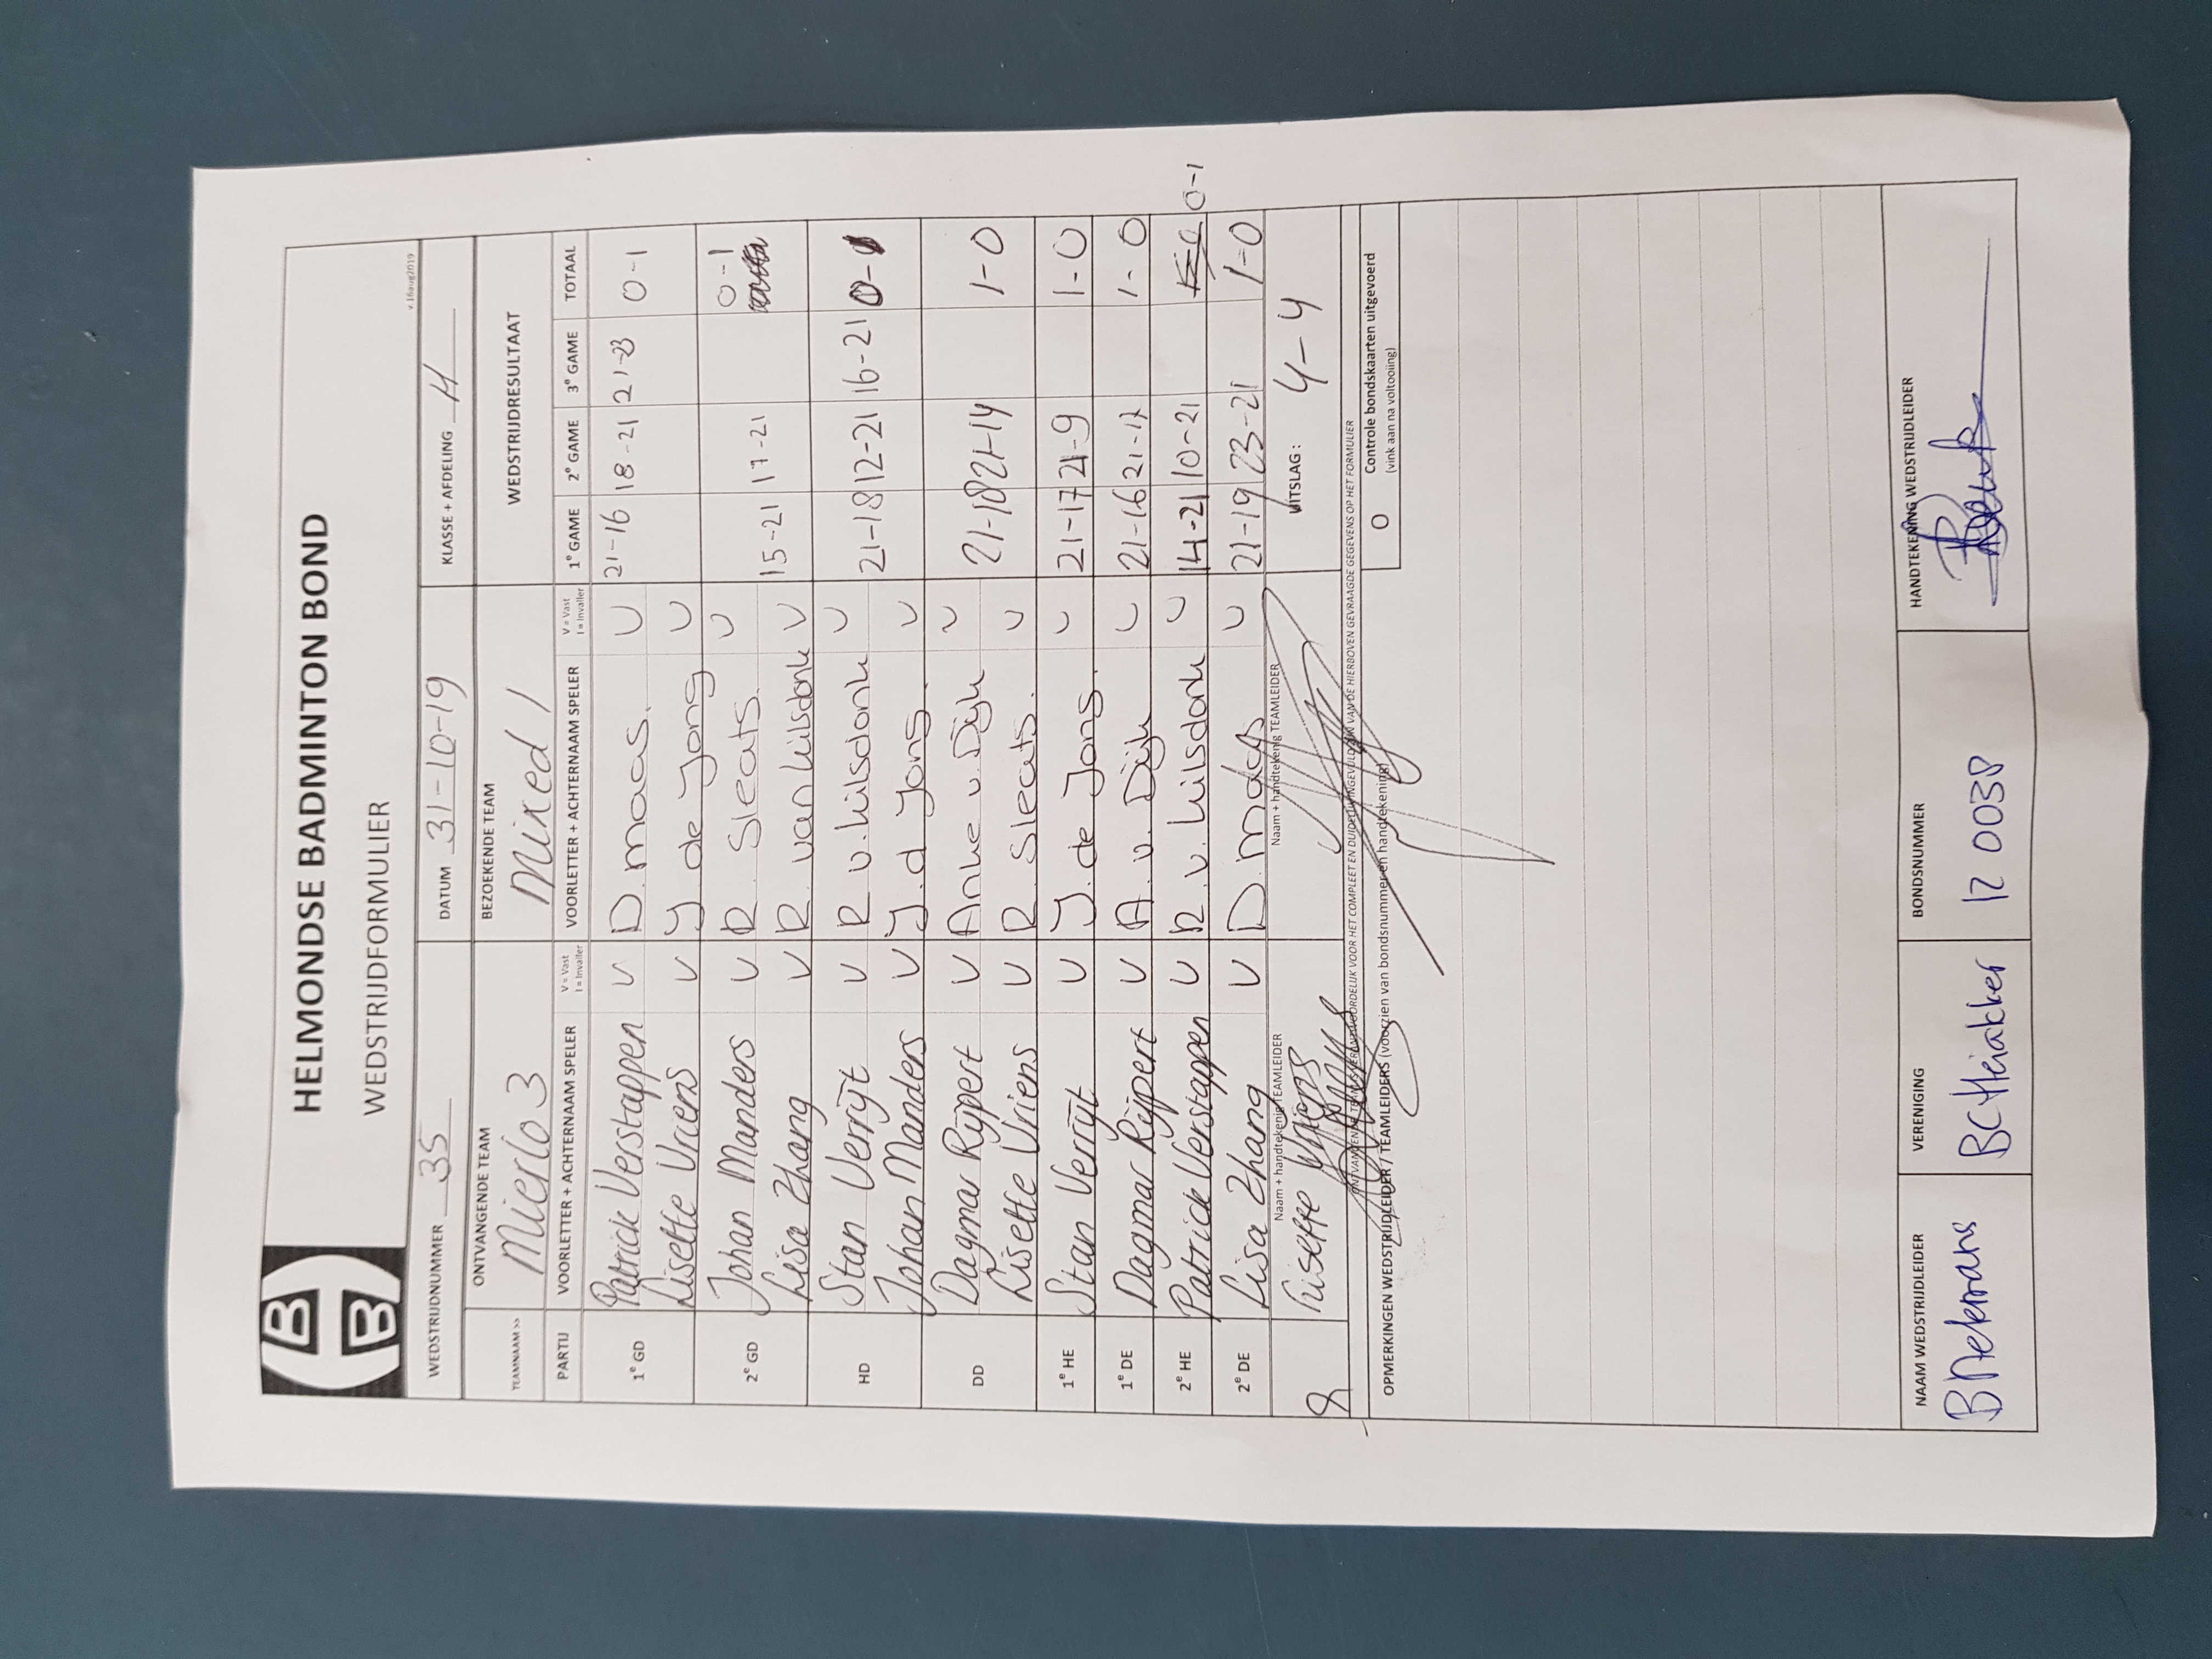 HELMONDSE BADMINTON BOND
WEDSTRIJDFORMULIER
v.16aug2019
WEDSTRIJDNUMMER 35 DATUM 31-10-19 KLASSE + AFDELING H
TEAMNAAM >> ONTVANGENDE TEAM BEZOEKENDE TEAM WEDSTRIJDRESULTAAT
Mierlo 3 Mixed 1
PARTIJ VOORLETTER + ACHTERNAAM SPELER V = Vast I = Invaller VOORLETTER + ACHTERNAAM SPELER V = Vast I = Invaller 1e GAME 2e GAME 3e GAME TOTAAL
1e GD Patrick Verstappen V D. maas. V 21-16 18-21 21-23 0-1
Lisette Vriens V J. de Jong V
2e GD Johan Manders V R. Sleats. V 0-1
Lisa Zhang V R. van Lilsdonk V 15-21 17-21
HD Stan Verrijt V R v. Lilsdonk V 21-18 12-21 16-21 0-1
Johan Manders V J. d Jong. V
DD Dagmar Rijpert V Anke v. Dijk V 21-18 21-14 1-0
Lisette Vriens V R Sleats. V
1e HE Stan Verrijt V J. de Jong. V 21-17 21-9 1-0
1e DE Dagmar Rijpert V A. v. Dijk V 21-16 21-17 1-0
2e HE Patrick Verstappen V R. v. Lilsdonk V 14-21 10-21 0-1
2e DE Lisa Zhang V D. maas V 21-19 23-21 1-0
Naam + handtekenig TEAMLEIDER Naam + handtekenig TEAMLEIDER UITSLAG: 4-4
Lisette Vriens
ONTVANGENDE TEAM IS VERANTWOORDELIJK VOOR HET COMPLEET EN DUIDELIJK INGEVULD ZIJN VAN DE HIERBOVEN GEVRAAGDE GEGEVENS OP HET FORMULIER
OPMERKINGEN WEDSTRIJDLEIDER / TEAMLEIDERS (voorzien van bondsnummer en handtekening) O Controle bondskaarten uitgevoerd
(vink aan na voltooiing)
NAAM WEDSTRIJDLEIDER VERENIGING BONDSNUMMER HANDTEKENING WEDSTRIJDLEIDER
BC Heiakker 12 0038